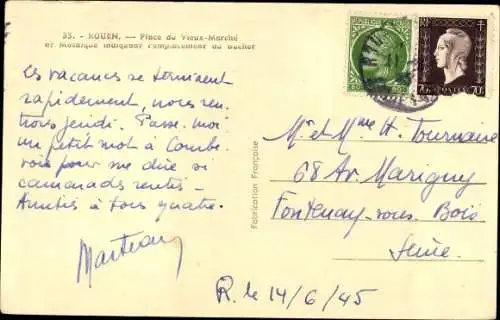 35. - ROUEN. — Place du Vieux-Marché
et Mosaïque indiquant l'emplacement du Bucher
Les vacances se terminent
rapidement, nous ren-
trons jeudi. Passe-moi
un petit mot à Courbe-
voie pour me dire si
camarades rentrés -
Amitiés à tous quatre.
Marteau
Fabrication Française
RF
POSTES
M. et Mme H. Tournaire
68 Av. Marigny
Fontenay-sous-Bois
Seine.
R. le 14/6/45